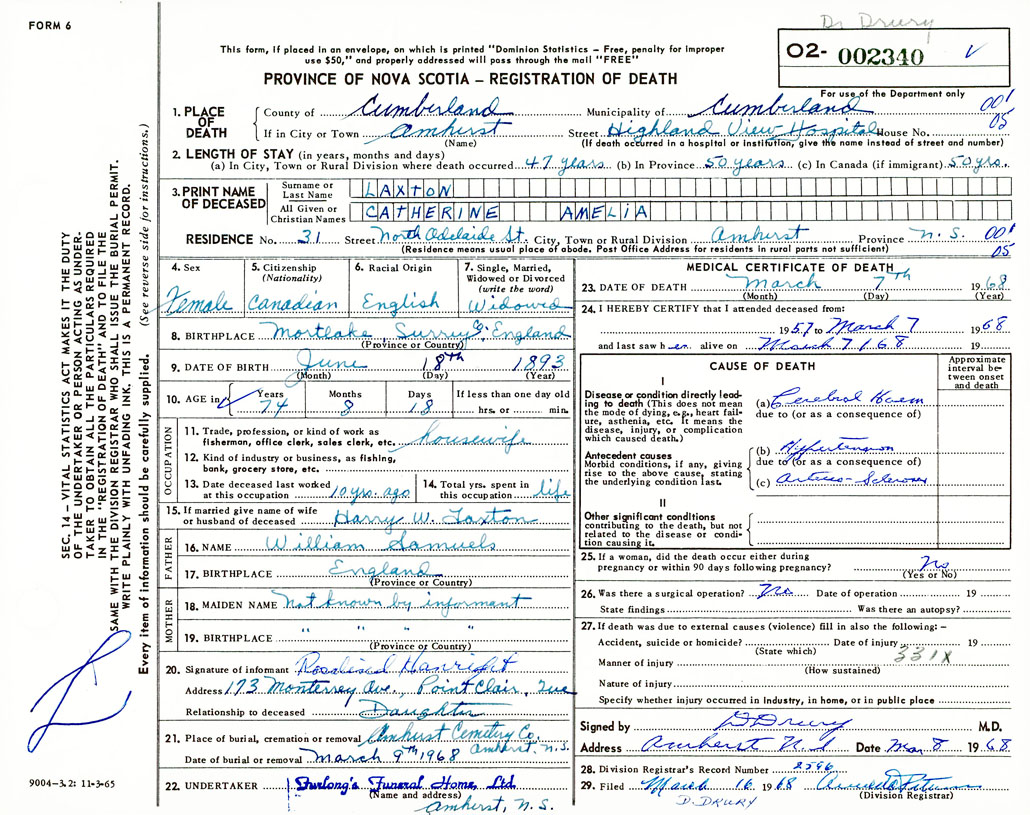 FORM 6
Dr Drury
This form, if placed in an envelope, on which is printed "Dominion Statistics – Free, penalty for improper
use $50," and properly addressed will pass through the mail "FREE"
O2- 002340
PROVINCE OF NOVA SCOTIA – REGISTRATION OF DEATH
For use of the Department only
1. PLACE OF DEATH
County of Cumberland Municipality of Cumberland 001
If in City or Town Amhurst Street Highland View Hospital House No. 05
(Name) (If death occurred in a hospital or institution, give the name instead of street and number)
2. LENGTH OF STAY (in years, months and days)
(a) In City, Town or Rural Division where death occurred 47 years (b) In Province 50 years (c) In Canada (if immigrant) 50 yrs.
3. PRINT NAME OF DECEASED
Surname or Last Name LAXTON
All Given or Christian Names CATHERINE AMELIA
RESIDENCE No. 31 Street North Adelaide St. City, Town or Rural Division Amherst Province N. S. 001
(Residence means usual place of abode. Post Office Address for residents in rural parts not sufficient) 05
4. Sex
Female
5. Citizenship (Nationality)
Canadian
6. Racial Origin
English
7. Single, Married, Widowed or Divorced (write the word)
Widowed
8. BIRTHPLACE Mortlake, England
(Province or Country)
9. DATE OF BIRTH June 18th 1893
(Month) (Day) (Year)
10. AGE in Years Months Days If less than one day old
74 8 18 hrs. or min.
OCCUPATION
11. Trade, profession, or kind of work as
fisherman, office clerk, sales clerk, etc. housewife
12. Kind of industry or business, as fishing,
bank, grocery store, etc.
13. Date deceased last worked
at this occupation 10 yrs. ago
14. Total yrs. spent in
this occupation life
15. If married give name of wife
or husband of deceased Harry W. Laxton
FATHER
16. NAME William Samuels
17. BIRTHPLACE England
(Province or Country)
MOTHER
18. MAIDEN NAME Not known by informant
19. BIRTHPLACE " " "
(Province or Country)
20. Signature of informant Hanright
Address 173 Monterrey Ave., Point Clair, Que
Relationship to deceased Daughter
21. Place of burial, cremation or removal Amherst Cemetery Co.
Amherst, N.S.
Date of burial or removal March 9th 1968
22. UNDERTAKER Furlong's Funeral Home, Ltd.
(Name and address)
Amherst, N. S.
MEDICAL CERTIFICATE OF DEATH
23. DATE OF DEATH March 7th 1968
(Month) (Day) (Year)
24. I HEREBY CERTIFY that I attended deceased from:
1957 to March 7 1968
and last saw h er alive on March 7/68 19
CAUSE OF DEATH
Approximate interval between onset and death
I
Disease or condition directly leading to death (This does not mean
the mode of dying, e.g., heart failure, asthenia, etc. It means the
disease, injury, or complication
which caused death.)
(a) Cerebral Haem
due to (or as a consequence of)
Antecedent causes
Morbid conditions, if any, giving
rise to the above cause, stating
the underlying condition last.
(b) Hypertension
due to (or as a consequence of)
(c) Arterio-Sclerosis
II
Other significant conditions
contributing to the death, but not
related to the disease or condition causing it.
25. If a woman, did the death occur either during
pregnancy or within 90 days following pregnancy? No
(Yes or No)
26. Was there a surgical operation? No Date of operation 19
State findings Was there an autopsy?
27. If death was due to external causes (violence) fill in also the following: –
Accident, suicide or homicide? Date of injury 19
(State which) 331X
Manner of injury
(How sustained)
Nature of injury
Specify whether injury occurred in industry, in home, or in public place
Signed by D Drury M.D.
Address Amherst N.S Date Mar 8 1968
28. Division Registrar's Record Number 2596
29. Filed March 16 1968
(Division Registrar)
D. DRURY
SEC. 14 – VITAL STATISTICS ACT MAKES IT THE DUTY
OF THE UNDERTAKER OR PERSON ACTING AS UNDER-
TAKER TO OBTAIN ALL THE PARTICULARS REQUIRED
IN THE "REGISTRATION OF DEATH" AND TO FILE THE
SAME WITH THE DIVISION REGISTRAR WHO SHALL ISSUE THE BURIAL PERMIT.
WRITE PLAINLY WITH UNFADING INK. THIS IS A PERMANENT RECORD.
Every item of information should be carefully supplied. (See reverse side for instructions.)
9004–3.2: 11-3-65